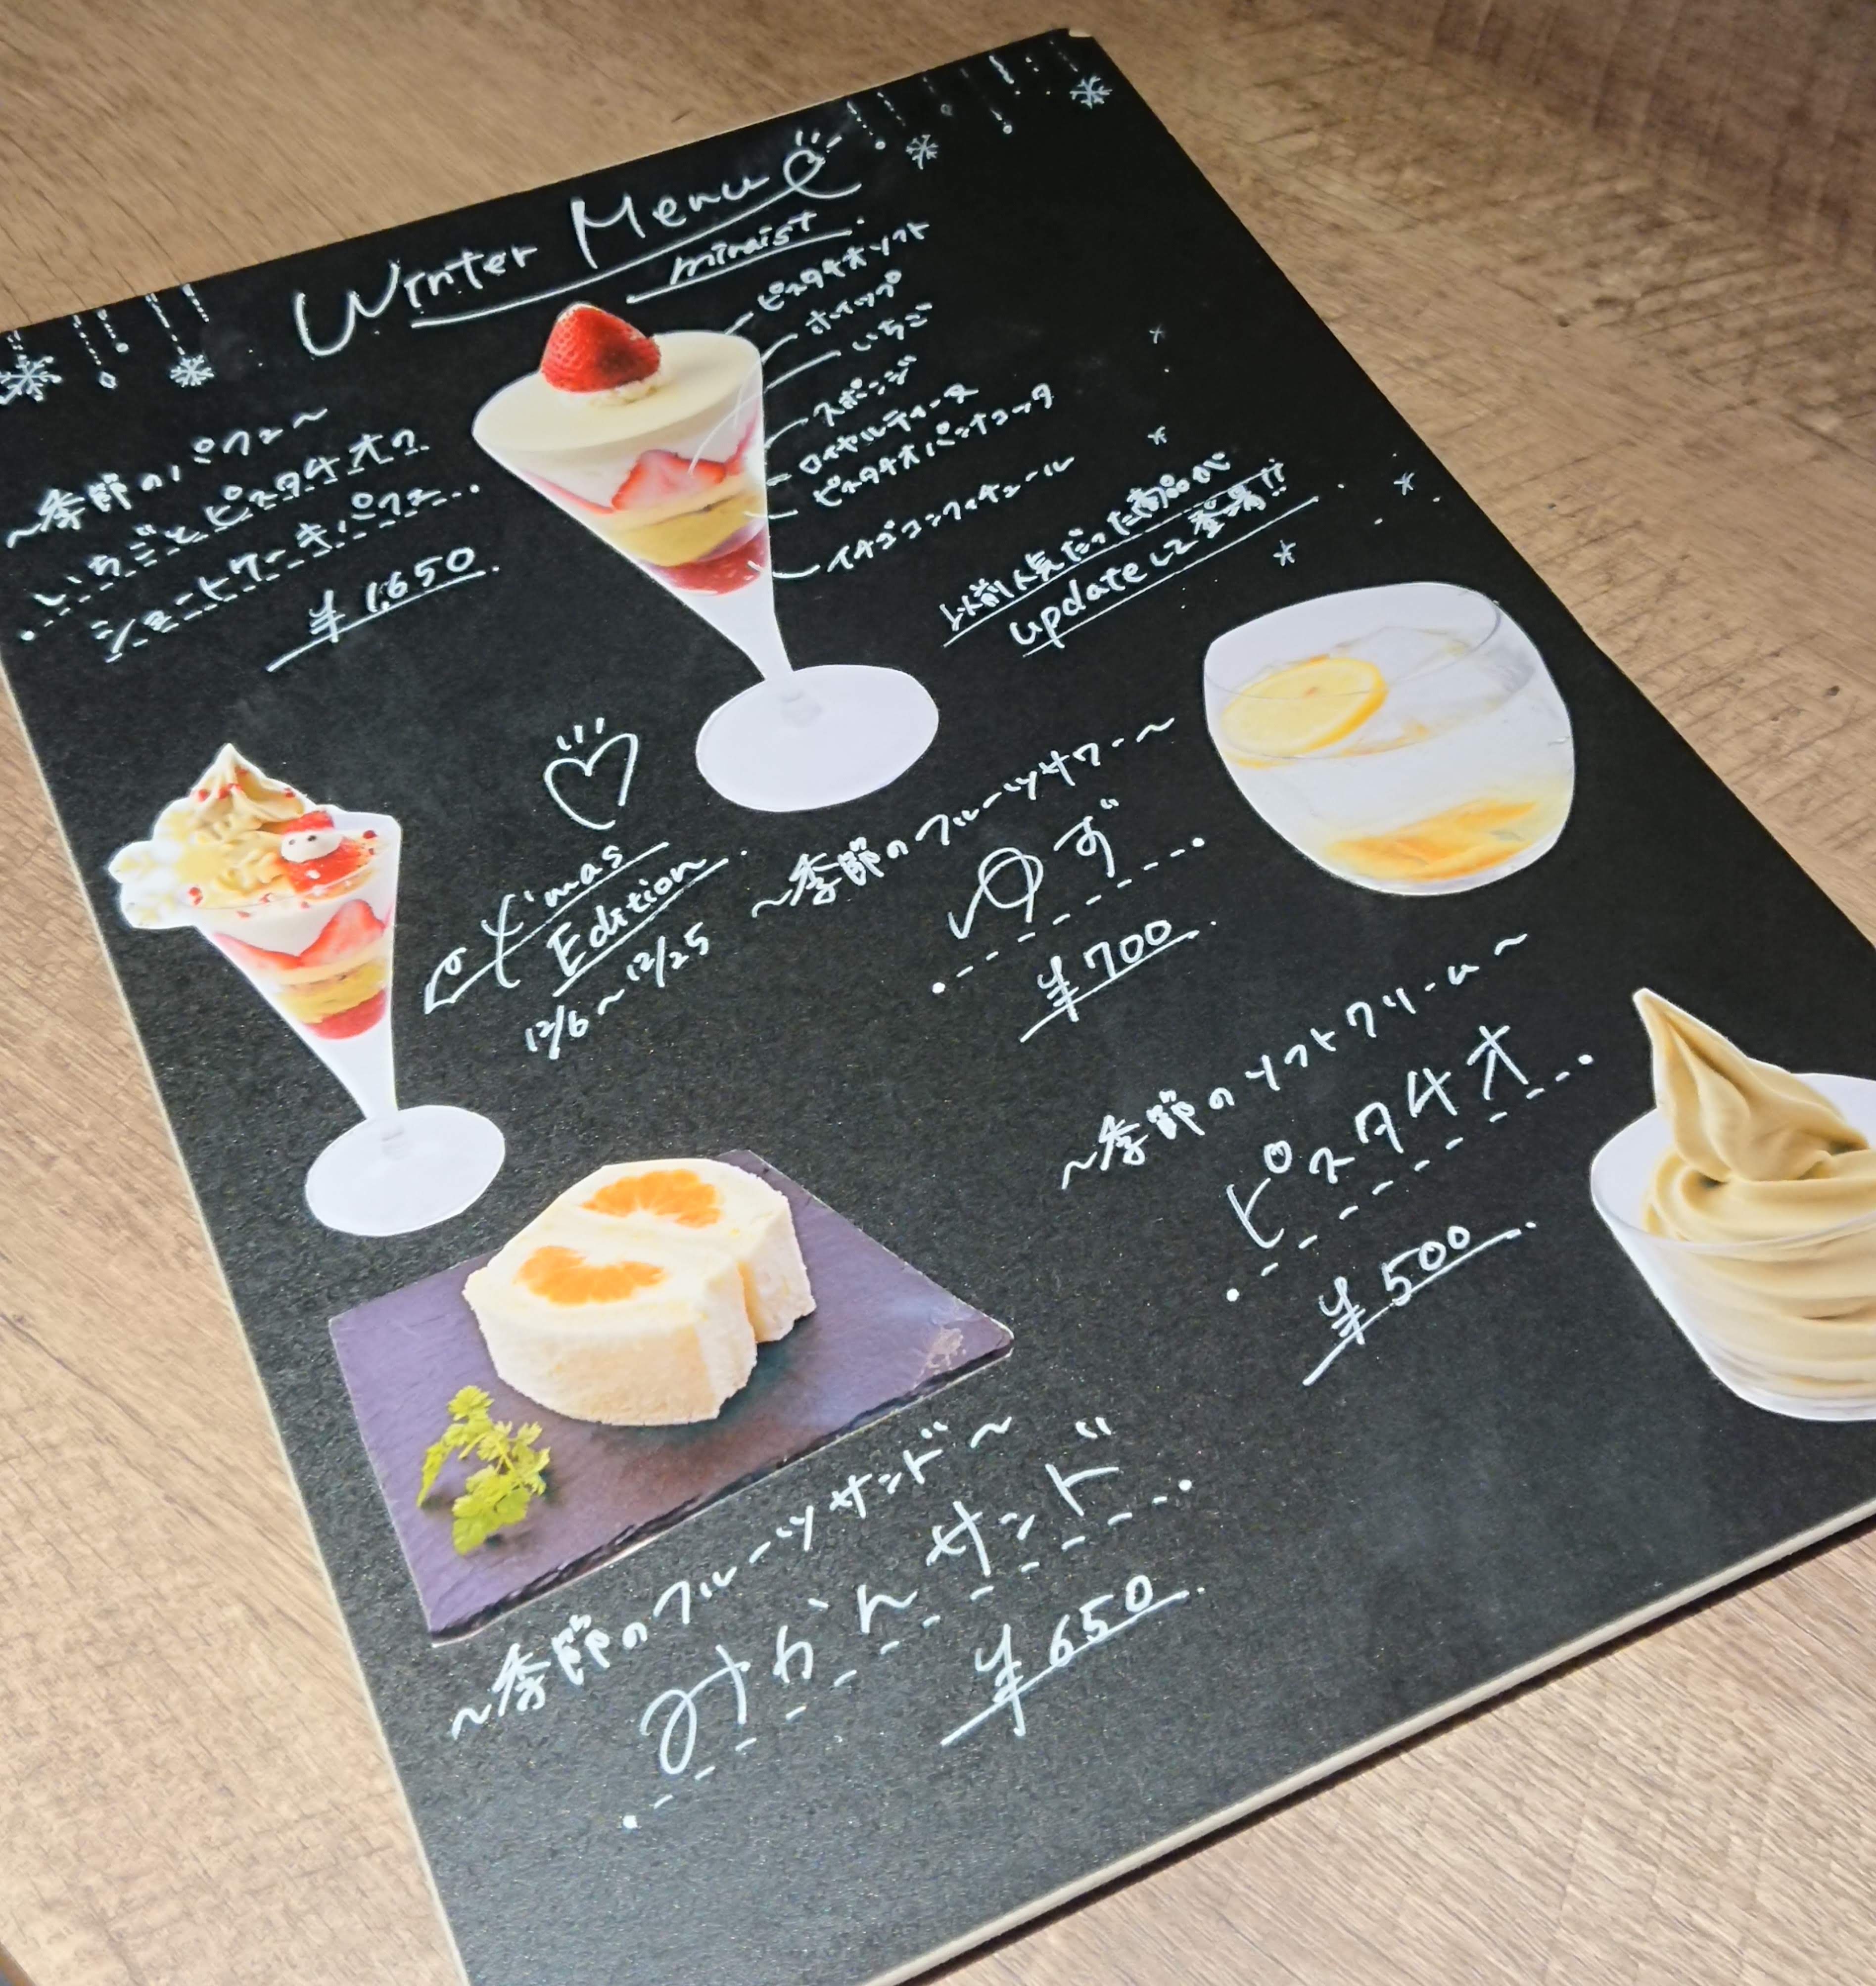 Winter Menu
miraist
ピスタチオソフト
ホイップ
いちご
スポンジ
ロイヤルティーヌ
ピスタチオパンナコッタ
イチゴコンフィチュール
~季節のパフェ~
いちごとピスタチオの
ショートケーキパフェ
¥1,650
以前人気だった商品が
updateして登場!!
X'mas
Edition
12/6~12/25
~季節のフルーツサワー~
ゆず
¥700
~季節のソフトクリーム~
ピスタチオ
¥500
~季節のフルーツサンド~
みかんサンド
¥650